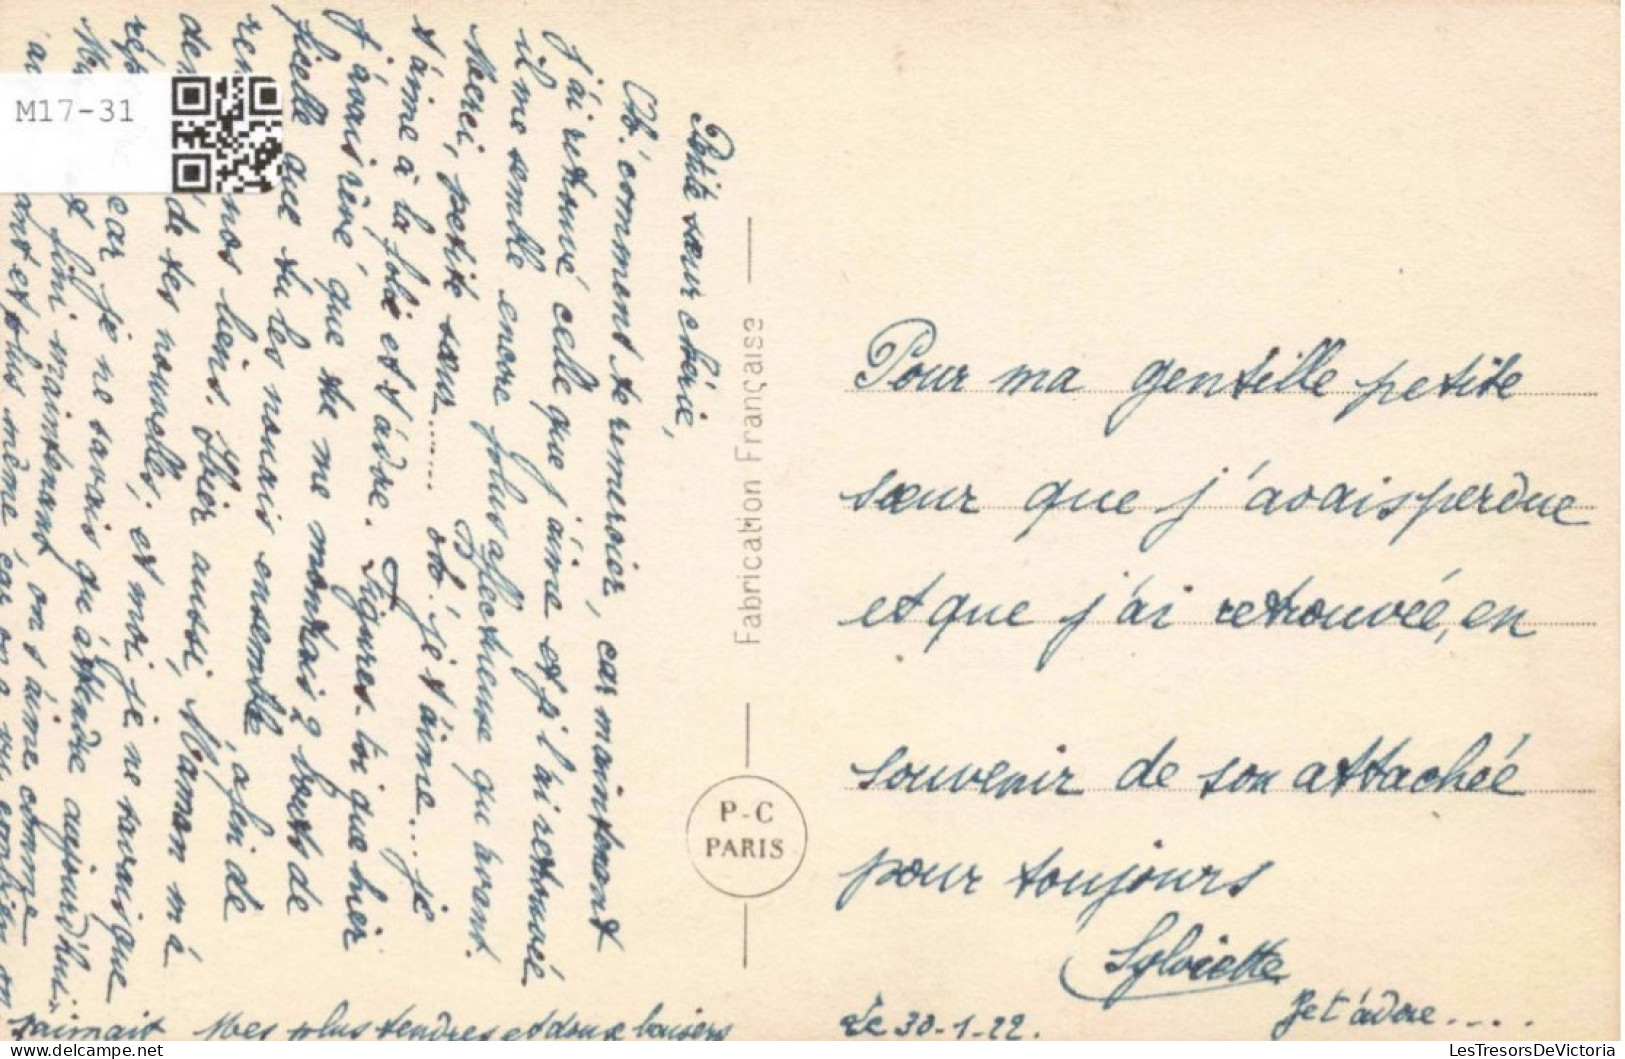 M17-31
Petite sœur chérie,
Oh! comment te remercier, car maintenant
j'ai retrouvé celle que j'aime et si l'ai retrouvée
il me semble encore plus affectueuse qu'avant.
Merci, petite sœur........ oh! je t'aime.... je
t'aime à la folie et t'adre. Figures-toi que hier
j'avais rêvé que tu me montrais 2 bouts de
ficelle que tu les nouais ensemble, afin de
nos liens. Hier aussi, Maman m'a
de tes nouvelles, et moi je ne savais que
car je ne savais qu'attendre aujourd'hui.
fini maintenant on s'aime comme
et plus même car on a vu combien on
s'aimait Mes plus tendres et doux baisers
Fabrication Française
P-C
PARIS
Pour ma gentille petite
sœur que j'avais perdue
et que j'ai retrouvée, en
souvenir de son attachée
pour toujours
Sylviette
Le 30-1-22.
Je t'adore.....
LesTresorsDeVictoria